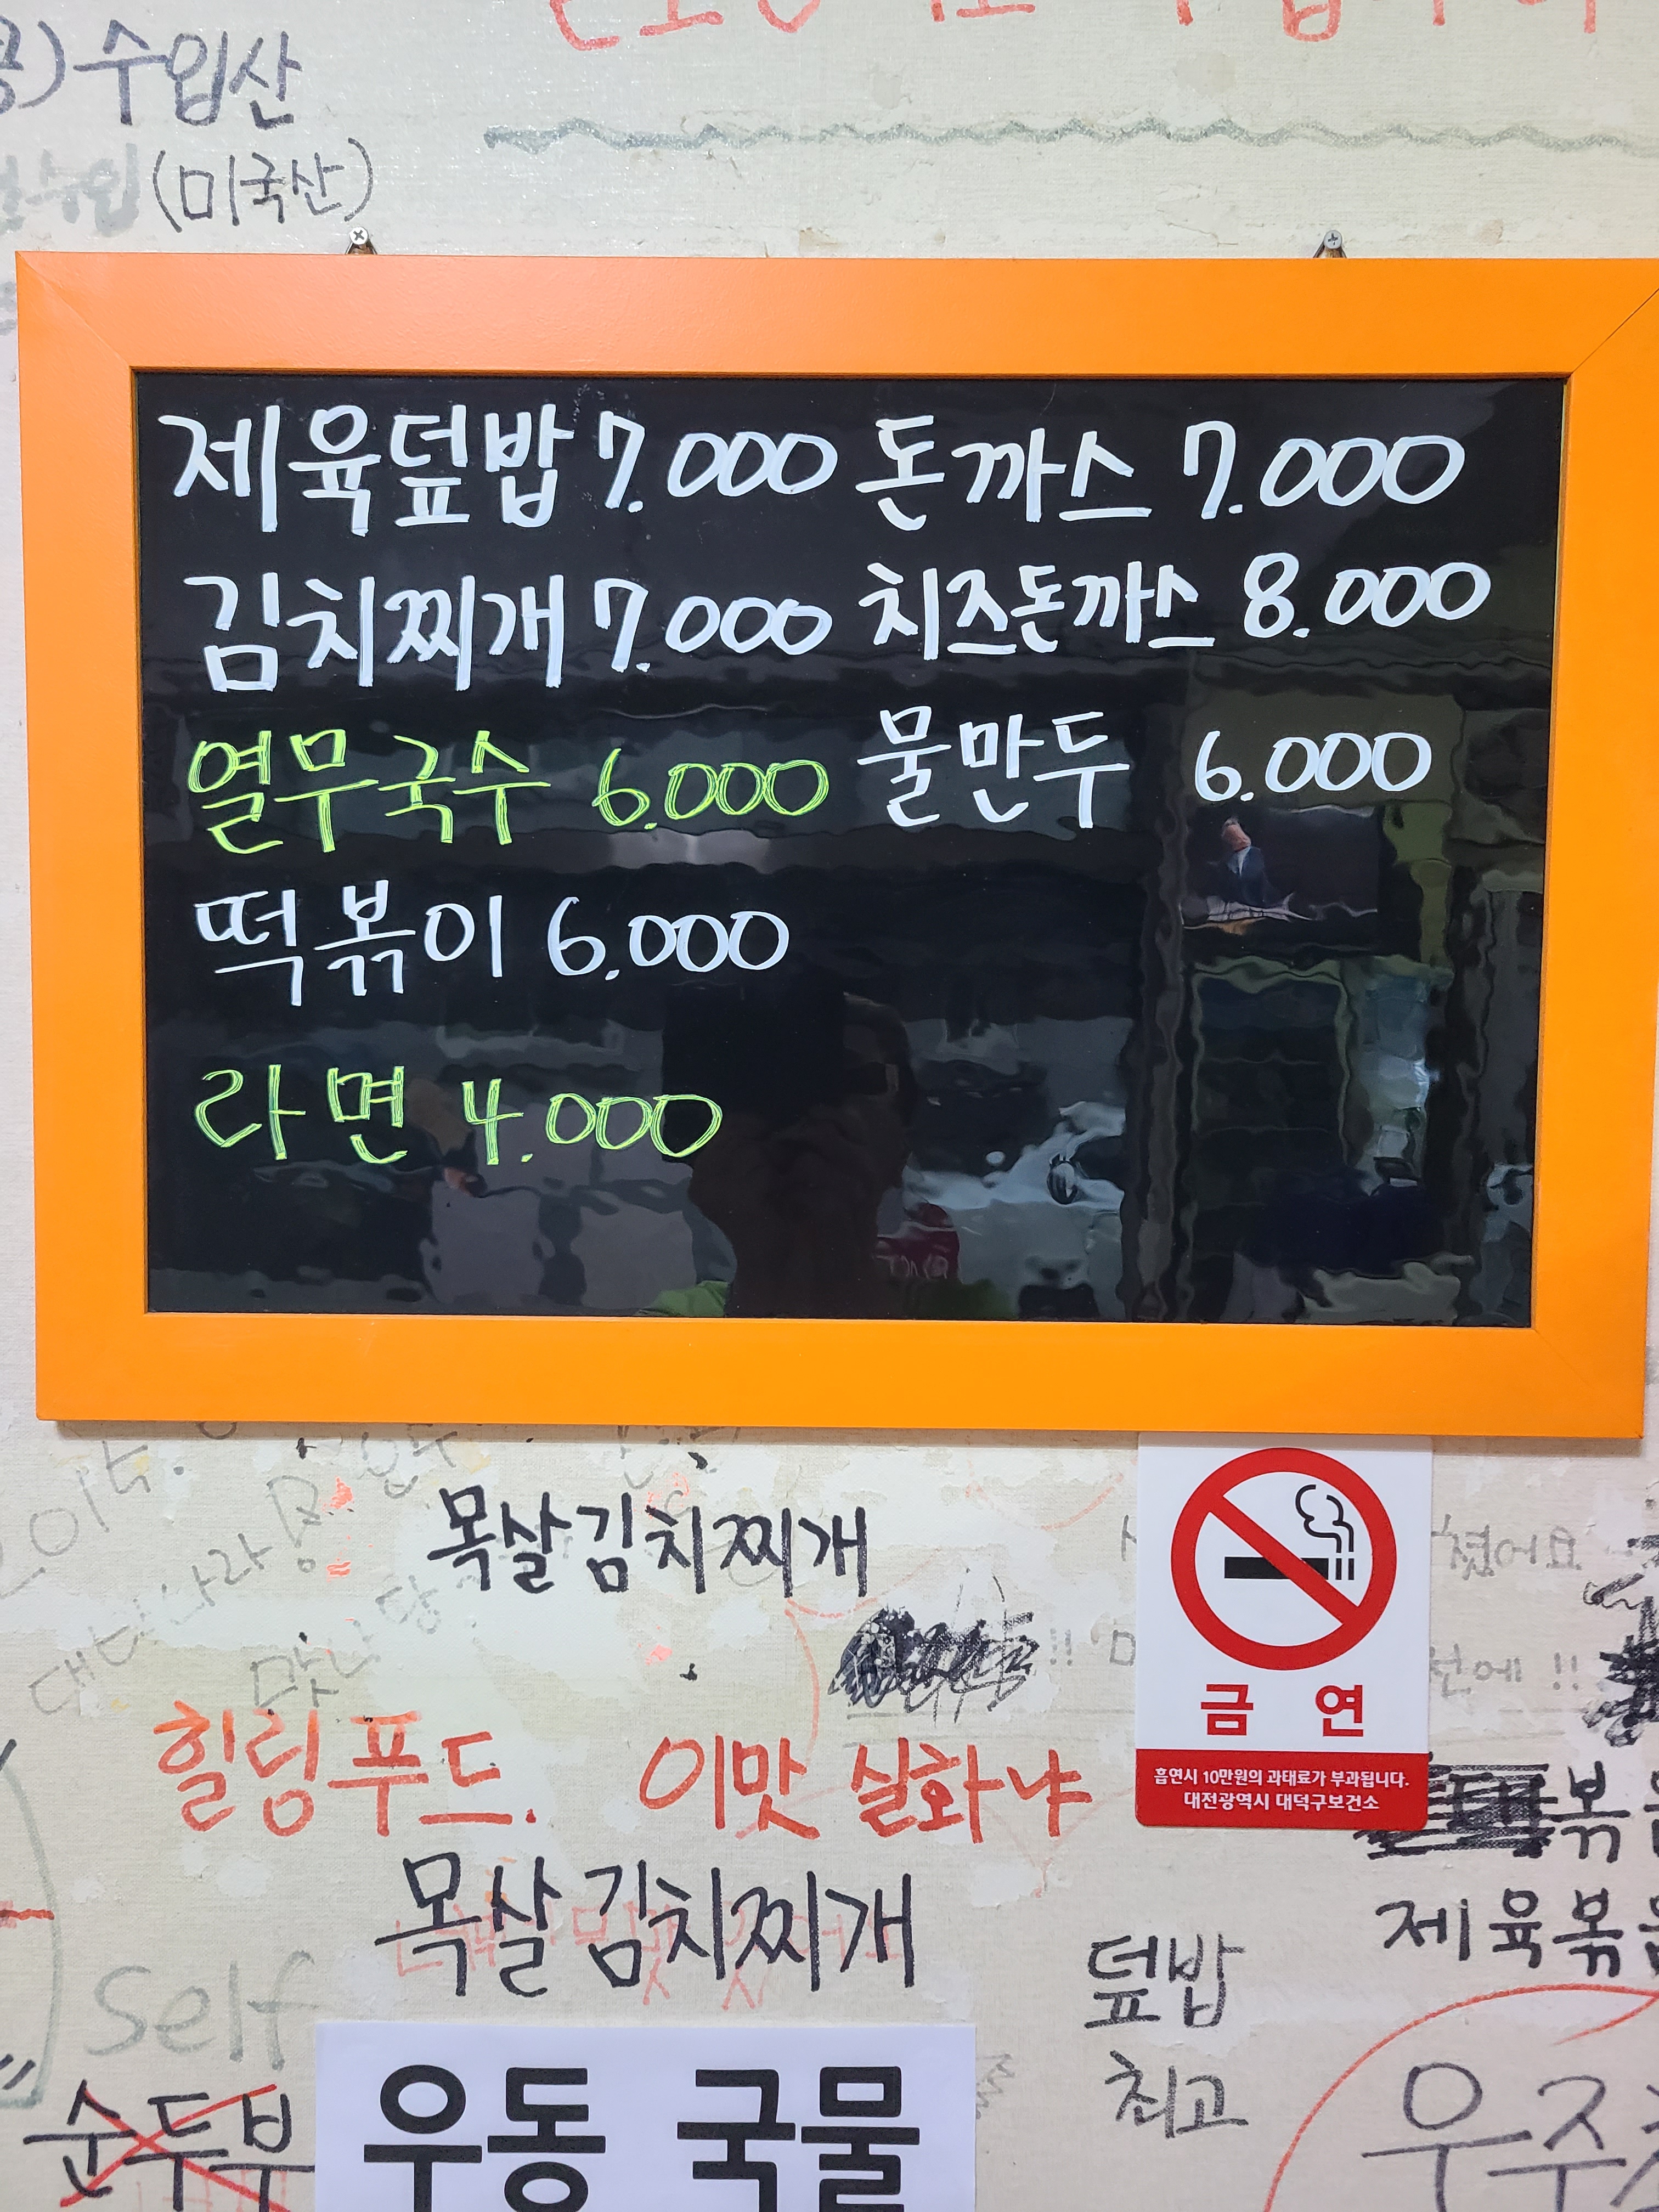 수입산
(미국산)
제육덮밥 7.000 돈까스 7.000
김치찌개 7.000 치즈돈까스 8.000
열무국수 6.000 물만두 6.000
떡볶이 6.000
라면 4.000
목살김치찌개
금 연
흡연시 10만원의 과태료가 부과됩니다.
대전광역시 대덕구보건소
힐링푸드. 이맛 실화냐
목살김치찌개
제육볶음
덮밥
최고
self
순두부
우동 국물